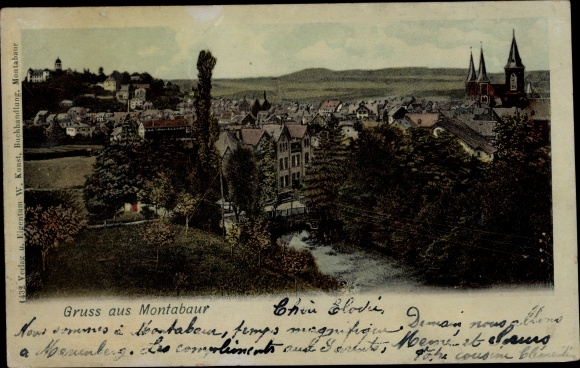 1432 Verlag u. Eigentum W. Kunst, Buchhandlung, Montabaur
Gruss aus Montabaur
Chère Elodie
Nous sommes à Montabaur, temps magnifique
Demain nous allons
à Les compliments aux Parents,
Votre cousine